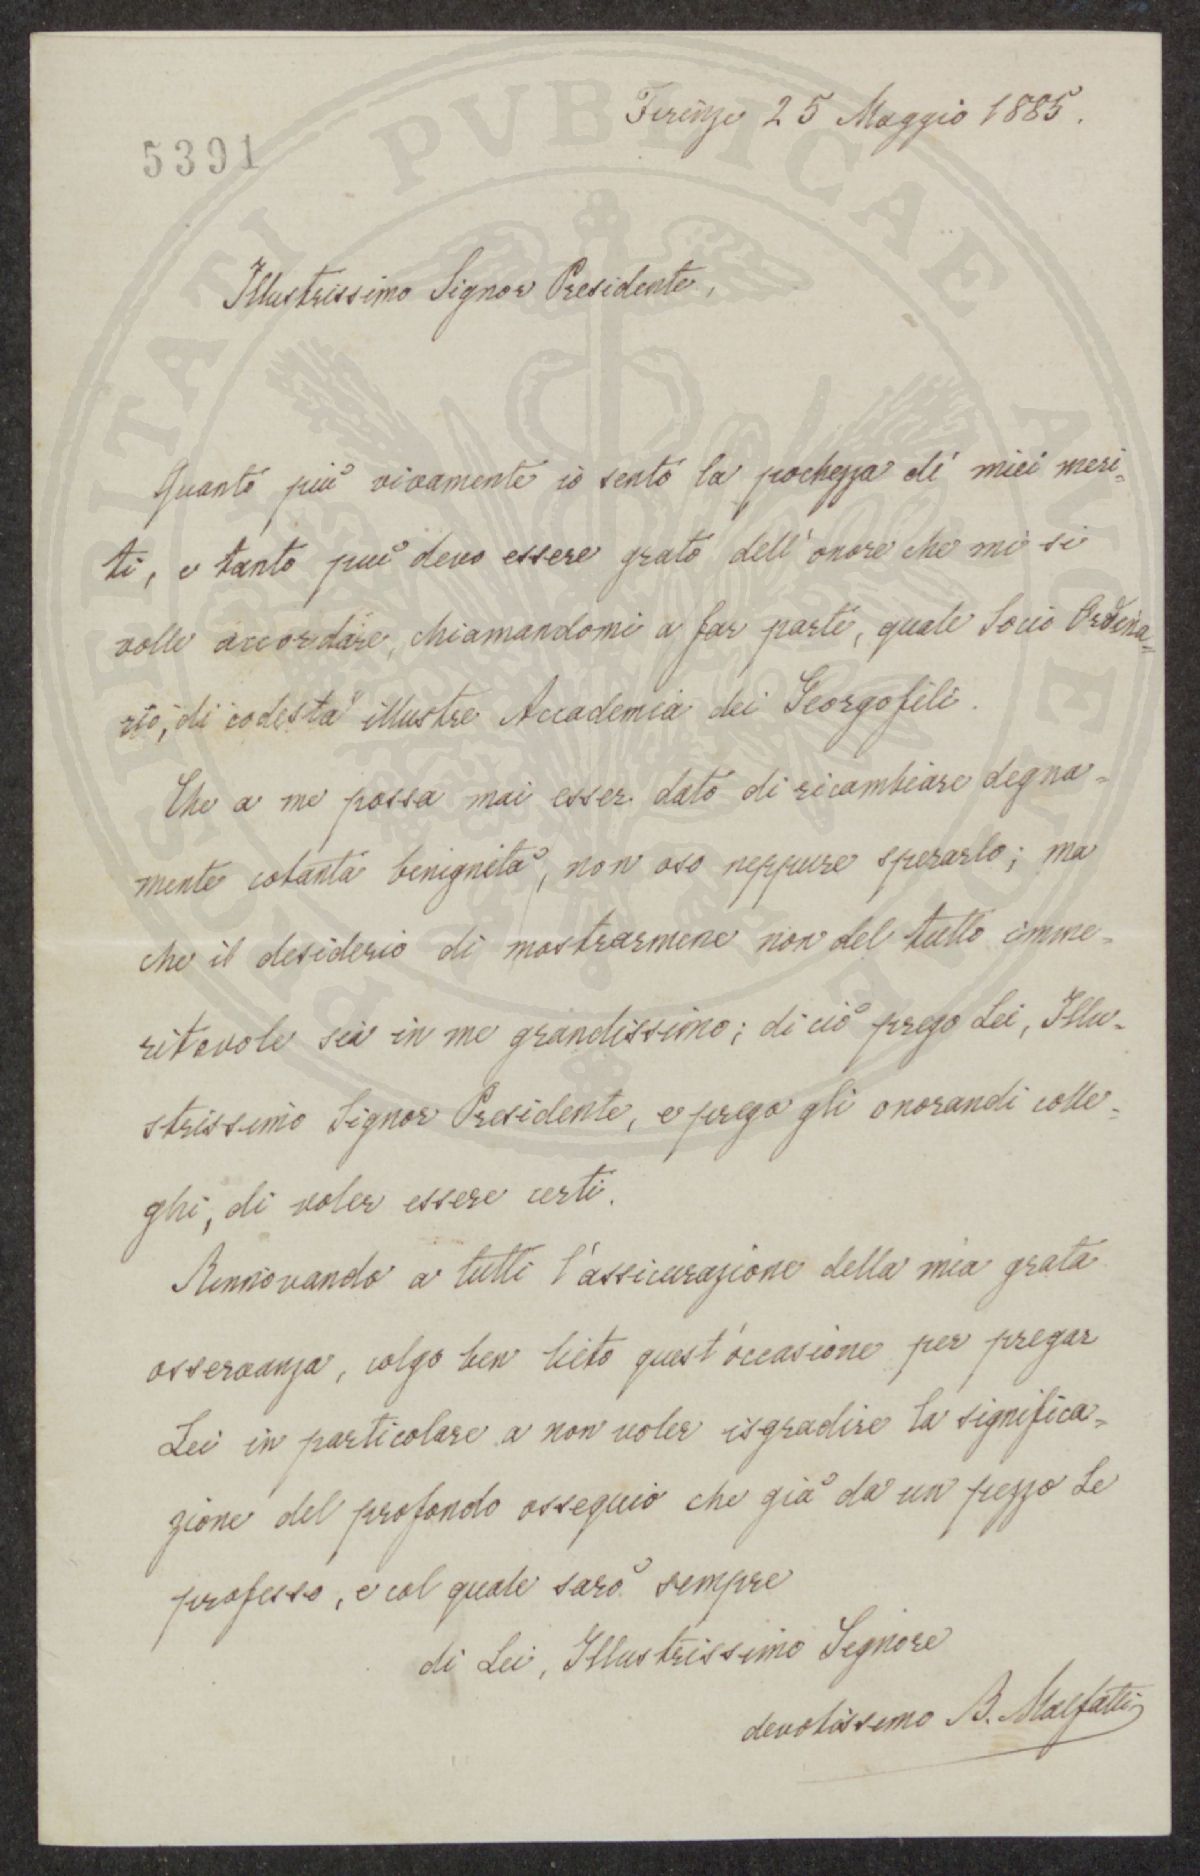 Firenze 25 Maggio 1885.
5391
Illustrissimo Signor Presidente,
Quanto più vivamente io sento la pochezza di miei meri-
ti, e tanto più devo essere grato dell'onore che mi si
volle accordare, chiamandomi a far parte, quale Socio Ordina=
rio, di codesta illustre Accademia dei Georgofili.
Che a me possa mai esser dato di ricambiare degna=
mente cotanta benignità, non oso neppure sperarlo; ma
che il desiderio di mostrarmene non del tutto imme=
ritevole sia in me grandissimo; di ciò prego Lei, Illu=
strissimo Signor Presidente, e prego gli onorandi colle=
ghi, di voler essere certi.
Rinnovando a tutti l'assicurazione della mia grata
osservanza, colgo ben lieto quest'occasione per pregar
Lei in particolare a non voler isgradire la significa=
zione del profondo ossequio che già da un pezzo Le
professo, e col quale sarò sempre
di Lei, Illustrissimo Signore
devotissimo B. Malfatti
PROSPERITATI PVBLICAE AVGENDAE